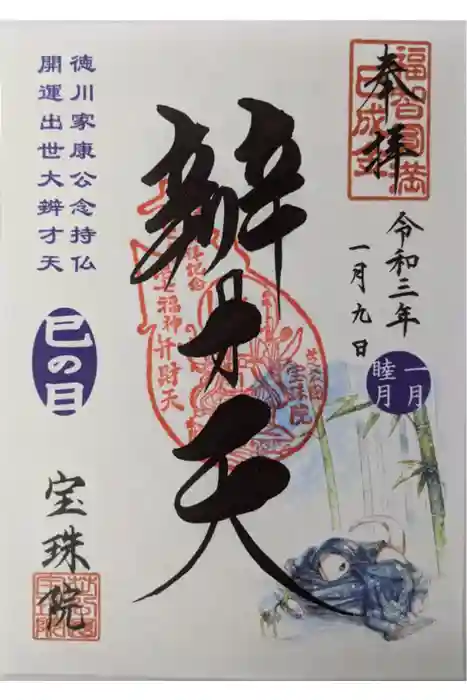 奉拝
令和三年
一月九日
一月
睦月
辨才天
徳川家康公念持仏
開運出世大辨才天
巳の日
宝珠院
福智円満
七福神弁財天
芝公園
宝珠院